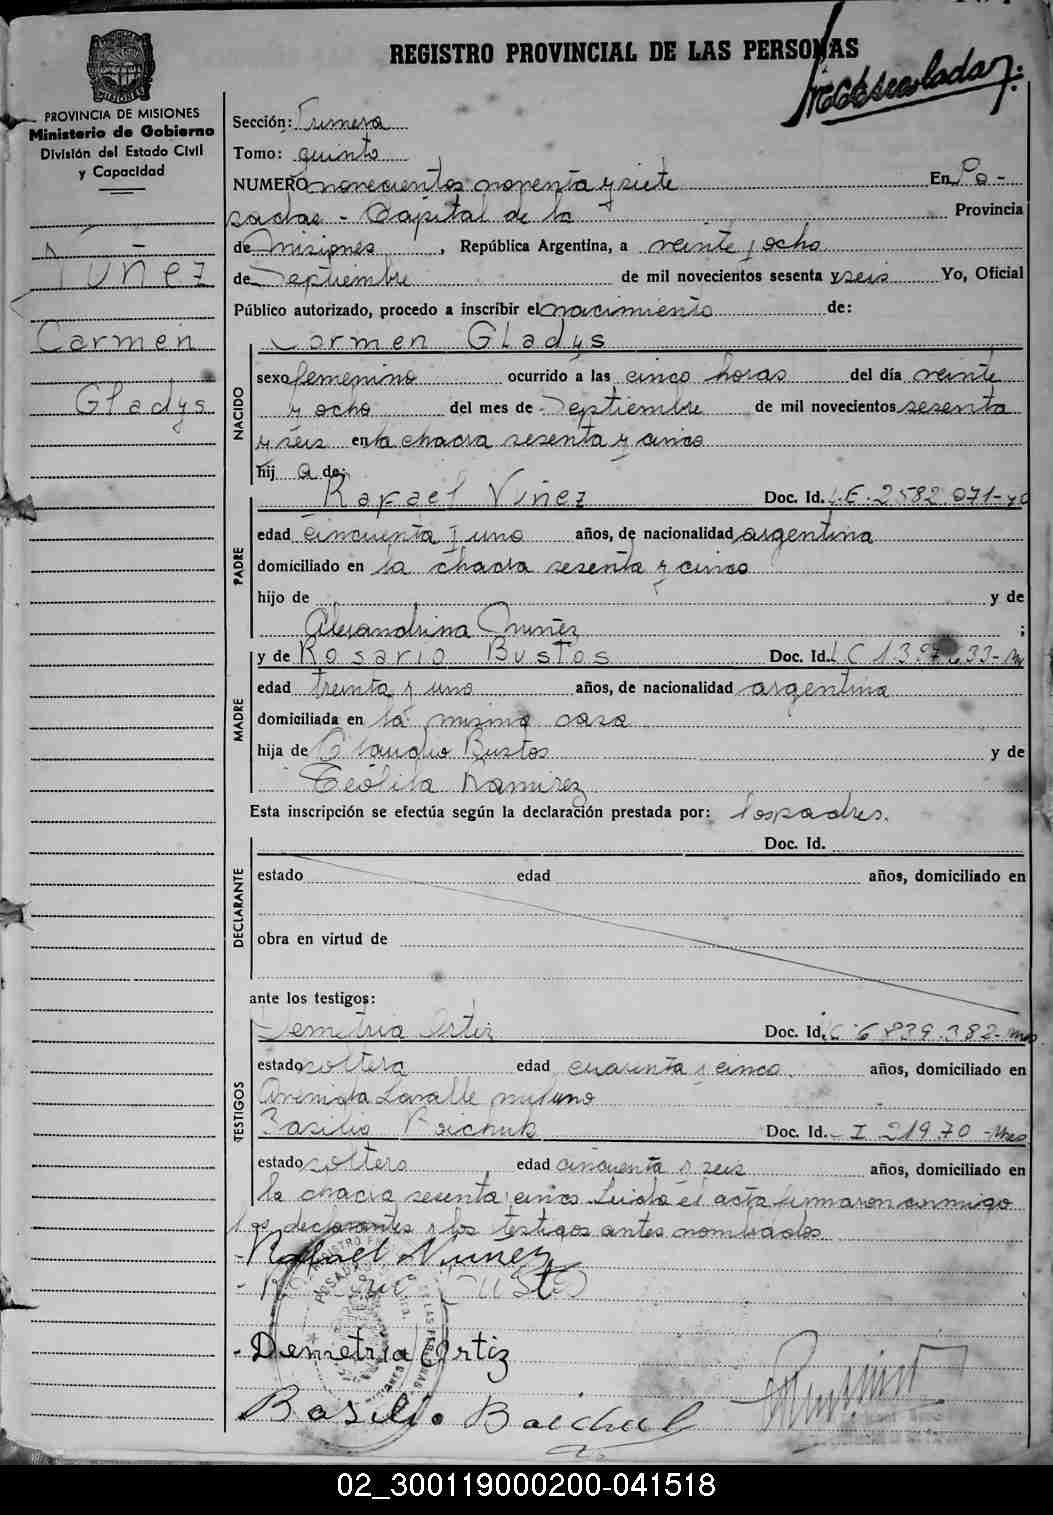 REGISTRO PROVINCIAL DE LAS PERSONAS
PROVINCIA DE MISIONES
Ministerio de Gobierno
División del Estado Civil
y Capacidad
Núñez
Carmen
Gladys
Sección: Primera
Tomo: quinto
NUMERO novecientos noventa y siete En Po-
sadas - Capital de la Provincia
de Misiones, República Argentina, a veinte y ocho
de Septiembre de mil novecientos sesenta y seis Yo, Oficial
Público autorizado, procedo a inscribir el nacimiento de:
Carmen Gladys
NACIDO
sexo femenino ocurrido a las cinco horas del día veinte
y ocho del mes de Septiembre de mil novecientos sesenta
y seis en la chacra sesenta y cinco
hij a de:
Rafael Nuñez Doc. Id. L.E. 2582.071-
PADRE
edad cincuenta y uno años, de nacionalidad argentina
domiciliado en la chacra sesenta y cinco
hijo de y de
Alejandrina Nuñez ;
y de Rosario Bustos Doc. Id. L C
MADRE
edad treinta y uno años, de nacionalidad argentina
domiciliada en la misma casa
hija de Claudio Bustos y de
Teófila Ramirez
Esta inscripción se efectúa según la declaración prestada por: los padres.
Doc. Id.
DECLARANTE
estado edad años, domiciliado en
obra en virtud de
ante los testigos:
Demetria Ortiz Doc. Id. L.C. 6.839.382-
TESTIGOS
estado soltera edad cuarenta y cinco años, domiciliado en
Avenida Lavalle
Basilio Boichuk Doc. Id. C I. 21970
estado soltero edad cincuenta y seis años, domiciliado en
la chacra sesenta y cinco Leida el acta firmaron conmigo
los declarantes y los testigos antes nombrados
- Rafael Nunez
- Demetria Ortiz
Basilio Boichuk
02_300119000200-041518